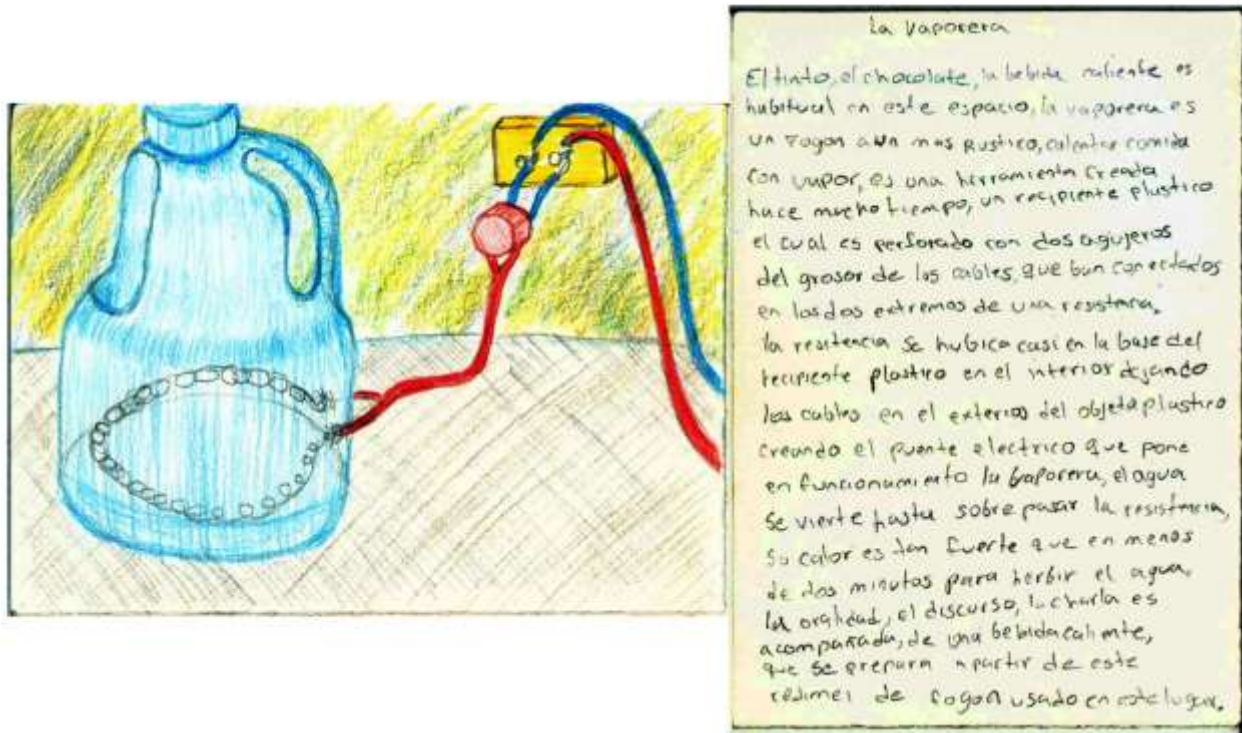 la vaporera
El tinto, el chocolate, la bebida caliente es
habitual en este espacio, la vaporera es
un fogon aun mas rustico, calentar comida
con vapor, es una herramienta creada
hace mucho tiempo, un recipiente plastico
el cual es perforado con dos agujeros
del grosor de los cables, que ban conectados
en los dos extremos de una resistencia.
la resitencia se hubica casi en la base del
recipiente plastico en el interior dejando
los cables en el exterior del objeto plastico
creando el puente electrico que pone
en funcionamiento la baporera, el agua
se vierte hasta sobre pasar la resistencia,
su calor es tan fuerte que en menos
de dos minutos para herbir el agua,
la oralidad, el discurso, la charla es
acompañada, de una bebida caliente,
que se prepara apartir de este
de fogon usado en este lugar.